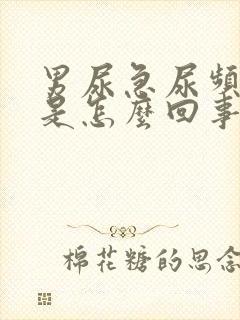 男尿急尿頻
是怎麼回事
棉花糖的思念